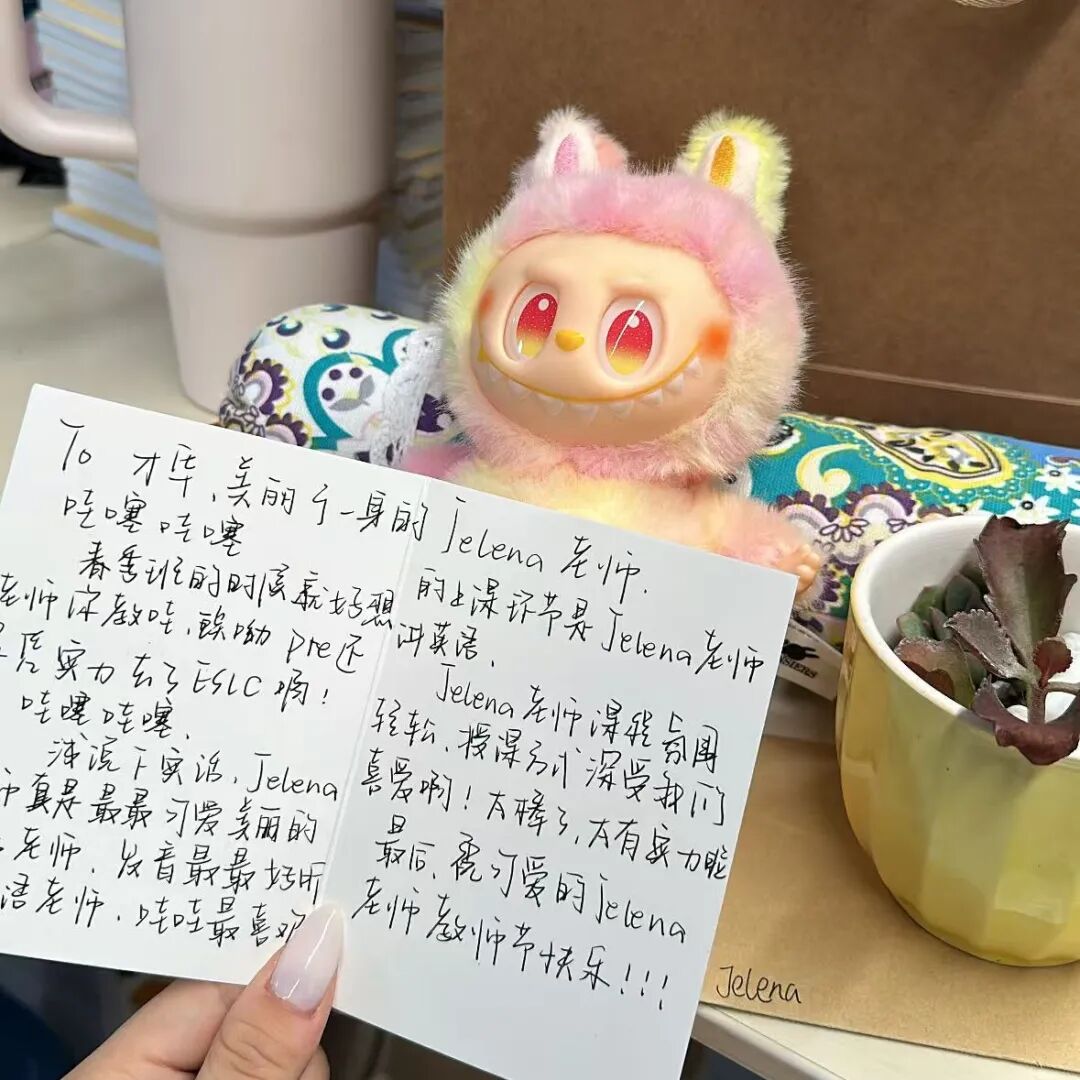 To 才华、美丽于一身的Jelena老师.
哇噻哇噻
春季班的时候就好想
老师你教哇,诶呦Pre还
是凭实力去了ESLC啊!
哇噻哇噻.
浅说下实话,Jelena
师真是最最可爱美丽的
老师,发音最最好听
语老师,哇哇最喜欢
的上课环节是Jelena老师
讲英语.
Jelena老师课程氛围
轻松,授课方式深受我们
喜爱啊!太棒了,太有实力啦
最后,祝可爱的Jelena
老师教师节快乐!!!
Jelena